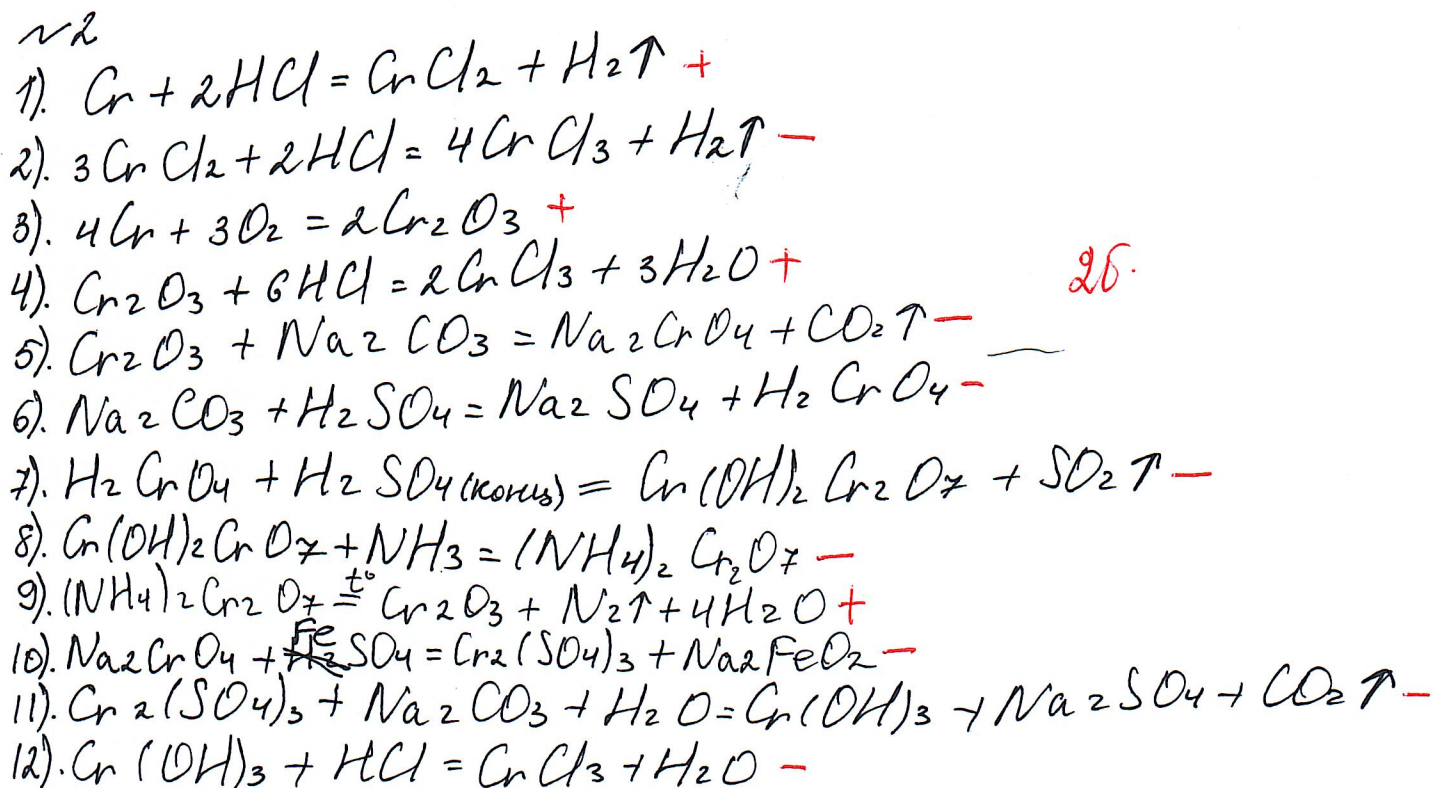 №2
1). Cr + 2HCl = CrCl2 + H2↑ +
2). 3CrCl2 + 2HCl = 4CrCl3 + H2↑ −
3). 4Cr + 3O2 = 2Cr2O3 +
4). Cr2O3 + 6HCl = 2CrCl3 + 3H2O +
2б.
5). Cr2O3 + Na2CO3 = Na2CrO4 + CO2↑ −
6). Na2CO3 + H2SO4 = Na2SO4 + H2CrO4 −
7). H2CrO4 + H2SO4(конц) = Cr(OH)2Cr2O7 + SO2↑ −
8). Cr(OH)2CrO7 + NH3 = (NH4)2Cr2O7 −
9). (NH4)2Cr2O7 t°= Cr2O3 + N2↑ + 4H2O +
10). Na2CrO4 + FeSO4 = Cr2(SO4)3 + Na2FeO2 −
11). Cr2(SO4)3 + Na2CO3 + H2O = Cr(OH)3 + Na2SO4 + CO2↑ −
12). Cr(OH)3 + HCl = CrCl3 + H2O −